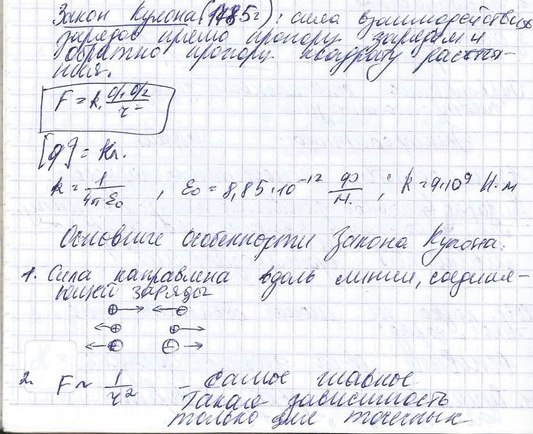 Закон Кулона (1785г): сила взаимодействия
зарядов прямо пропорц. зарядам и
обратно пропорц. квадрату расстоя-
ния.
F = k · q₁ q₂ / r²
[q] = Кл.
k = 1 / 4π ε₀ , ε₀ = 8,85·10⁻¹² Ф / м. ; k = 9·10⁹ Н·м
Основные особенности Закона Кулона:
1. Сила направлена вдоль линии, соединя-
ющей заряды
⊕→ ←⊖
←⊕ ⊕→
←⊖ ⊖→
2. F ~ 1 / r² – самое главное
Такая зависимость
только для точечных